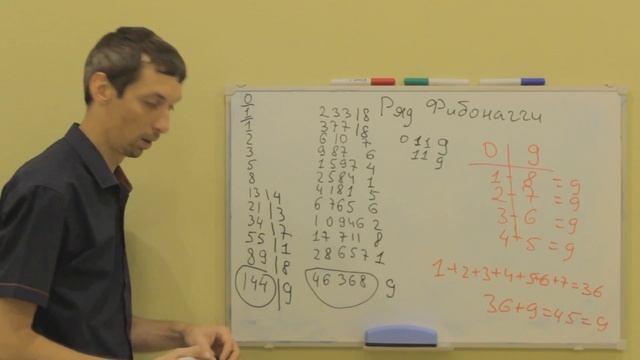 Ряд Фибоначчи
0
1
1
2
3
5
8
13 | 4
21 | 3
34 | 7
55 | 1
89 | 8
144 | 9
233 | 8
377 | 8
610 7
987 6
1597 4
2584 1
4181 5
6765 6
10946 2
17711 8
28657 1
46368 9
0 1 1 9
1 1 9
0 | 9
1 - 8 = 9
2 - 7 = 9
3 - 6 = 9
4 + 5 = 9
1+2+3+4+5+6+7=36
36+9=45=9